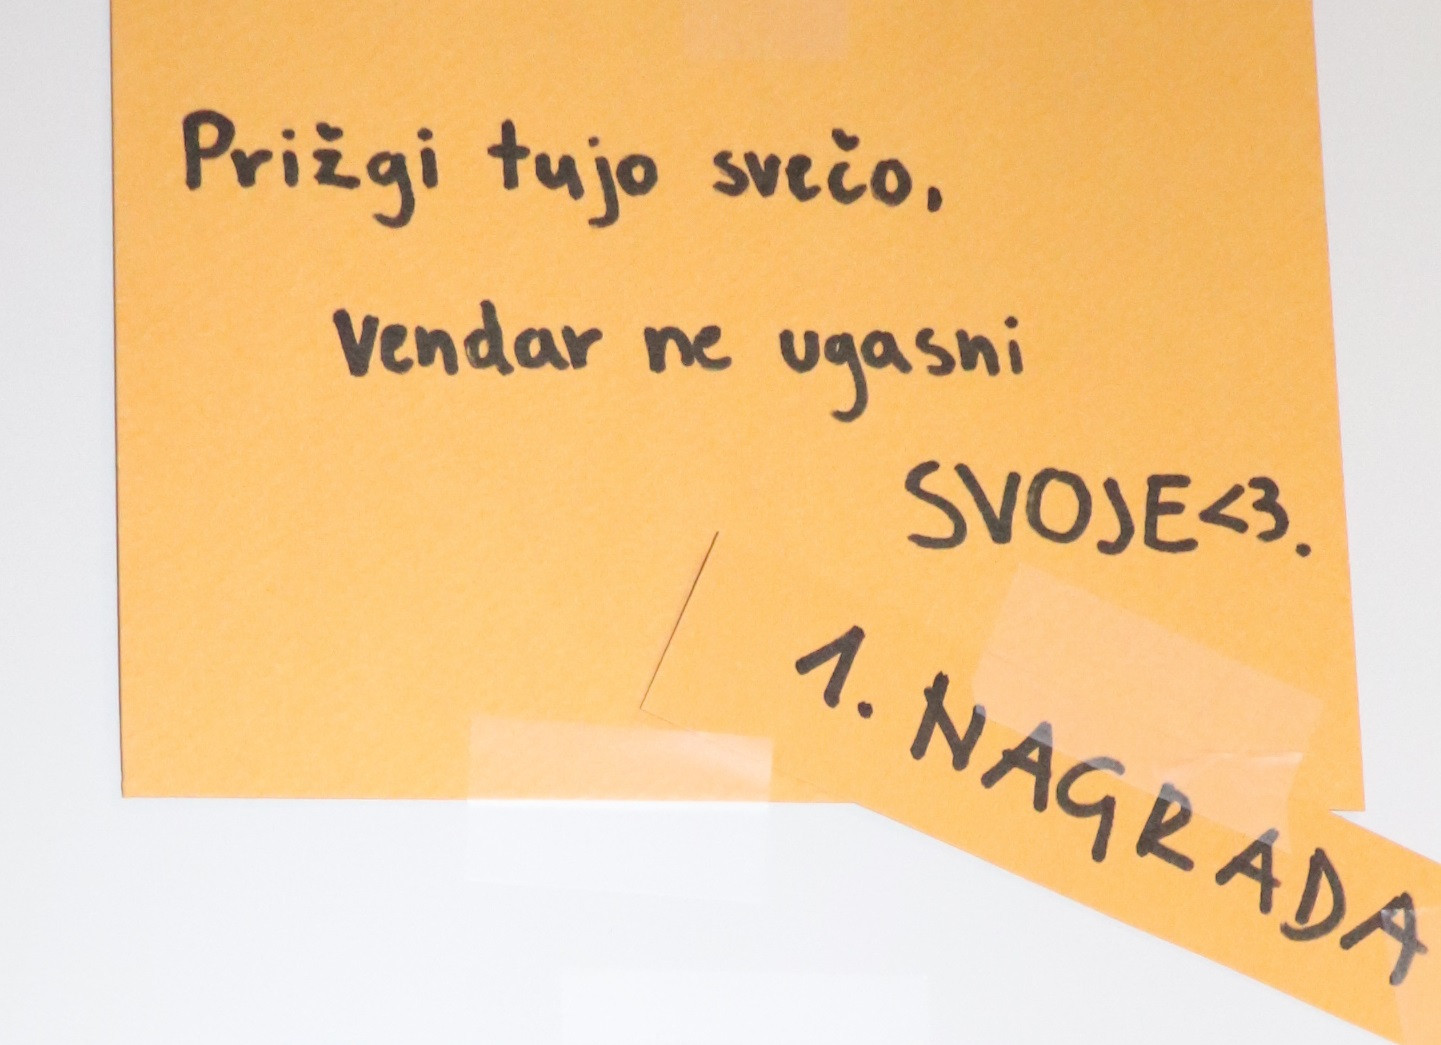 Prižgi tujo svečo,
vendar ne ugasni
SVOJE<3.
1. NAGRADA